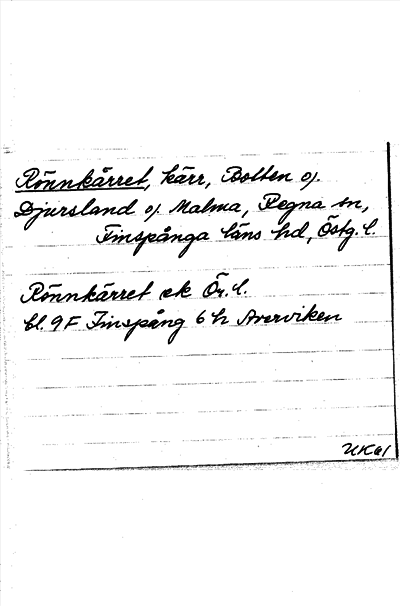 Rönnkärret, kärr, Botten o/.
Djursland o/. Malma, Regna sn,
Finspånga läns hd, Östg. l.
Rönnkärret ek Ör. l.
bl. 9F Finspång 6 h Averviken